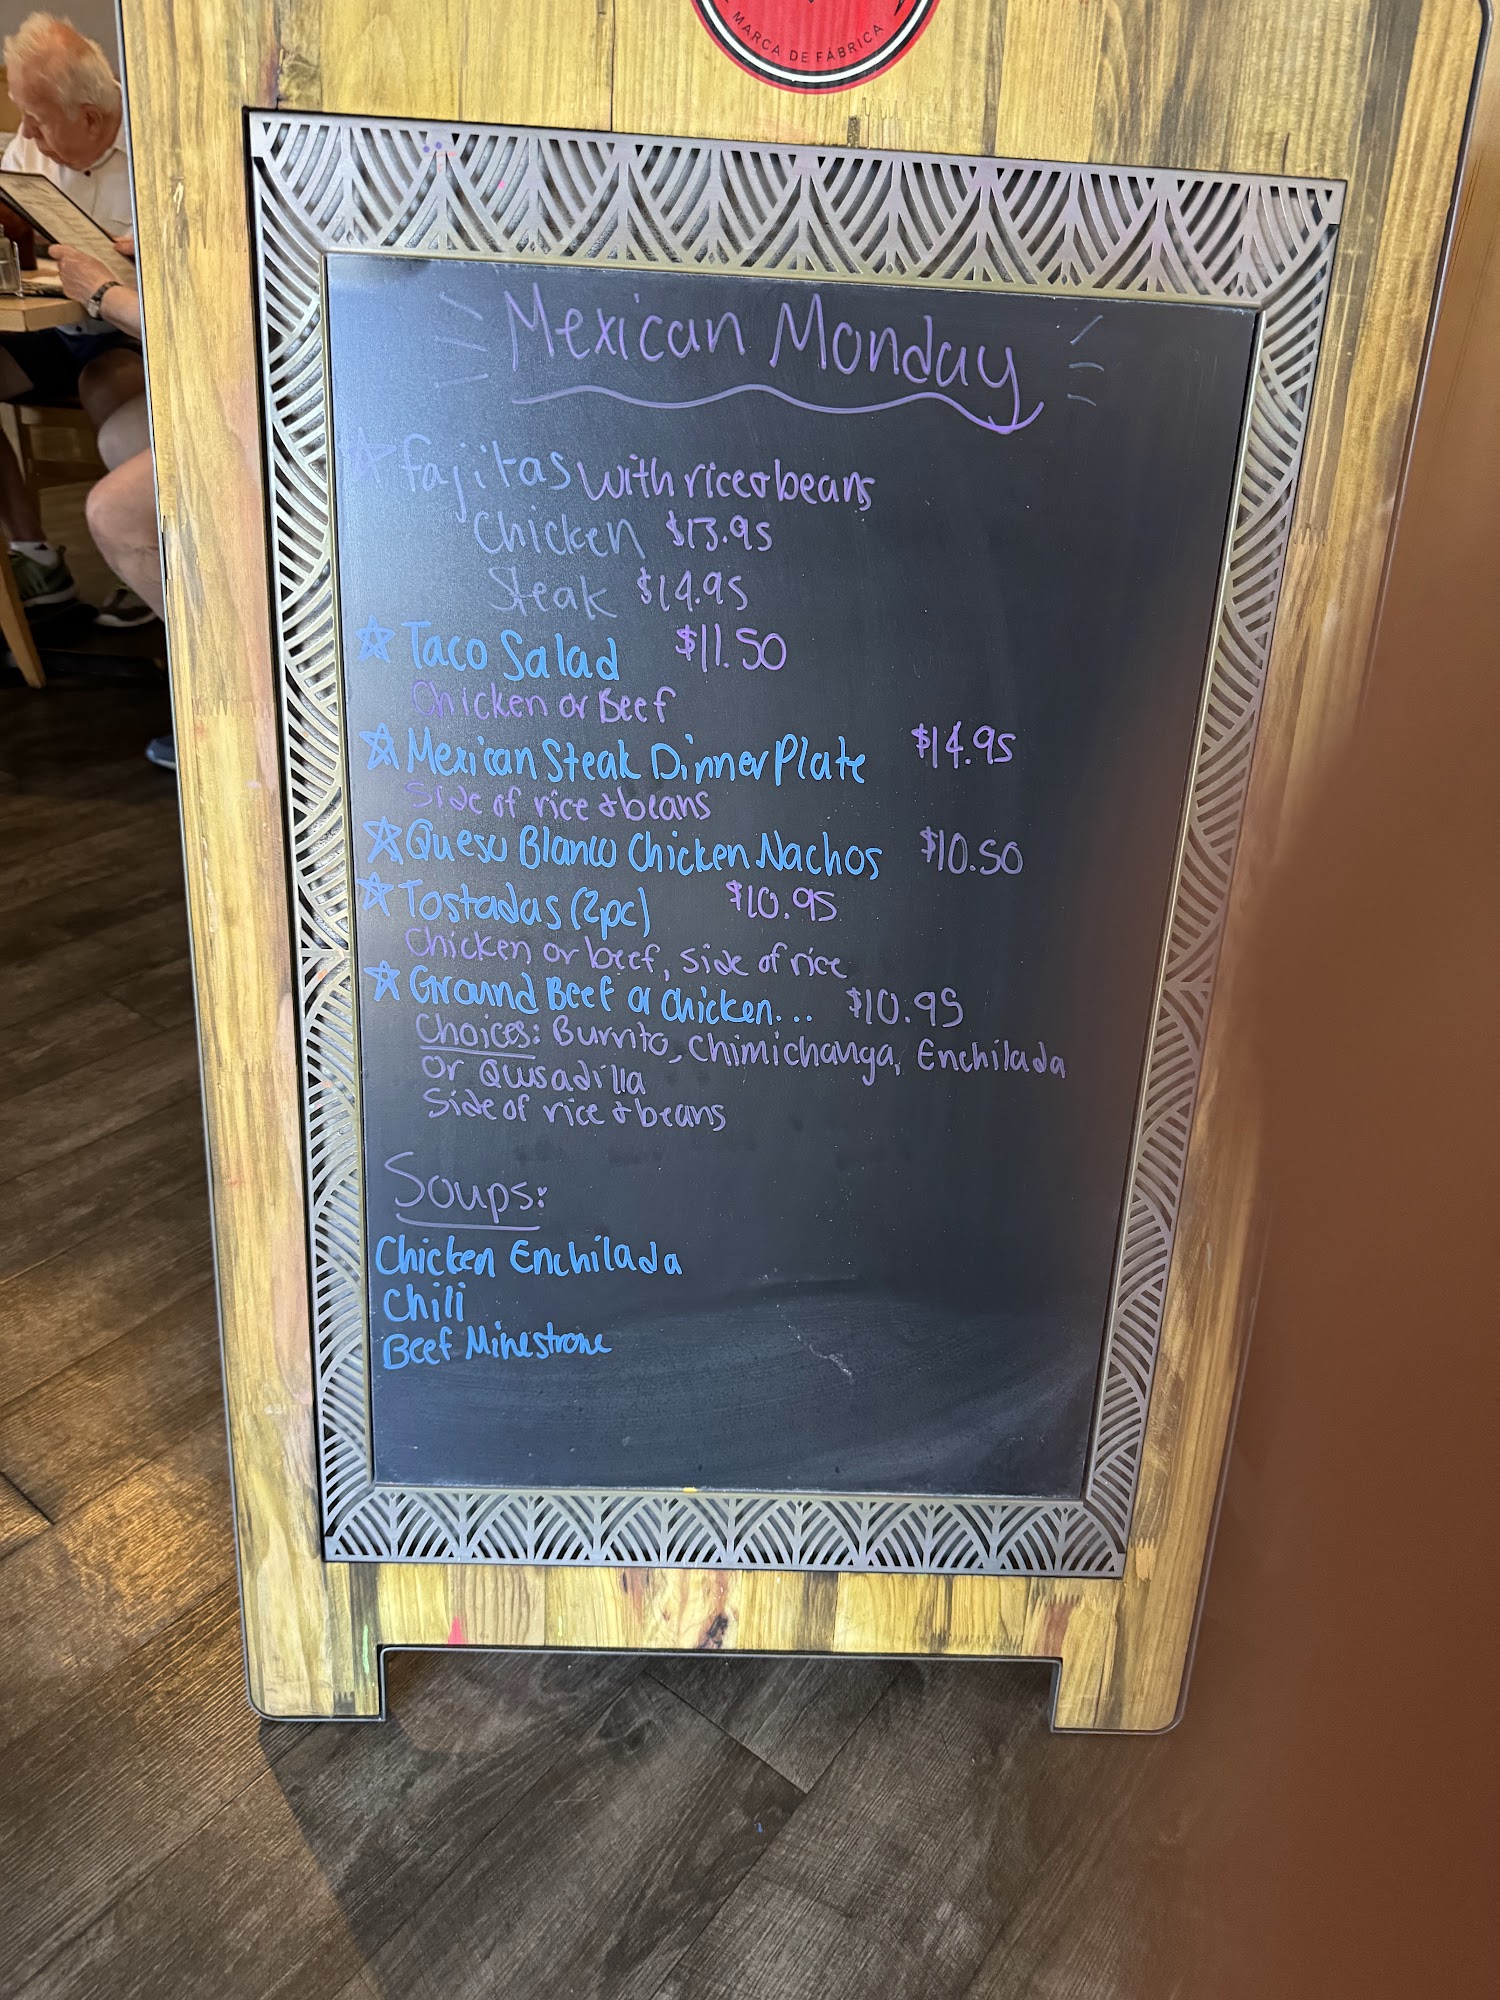 MARCA DE FÁBRICA
Mexican Monday
Fajitas with rice & beans
Chicken $13.95
Steak $14.95
Taco Salad $11.50
Chicken or Beef
Mexican Steak Dinner Plate $14.95
Side of rice & beans
Queso Blanco Chicken Nachos $10.50
Tostadas (2pc) $10.95
Chicken or beef, side of rice
Ground Beef or Chicken... $10.95
Choices: Burrito, Chimichanga, Enchilada
Or Quesadilla
Side of rice & beans
Soups:
Chicken Enchilada
Chili
Beef Minestrone